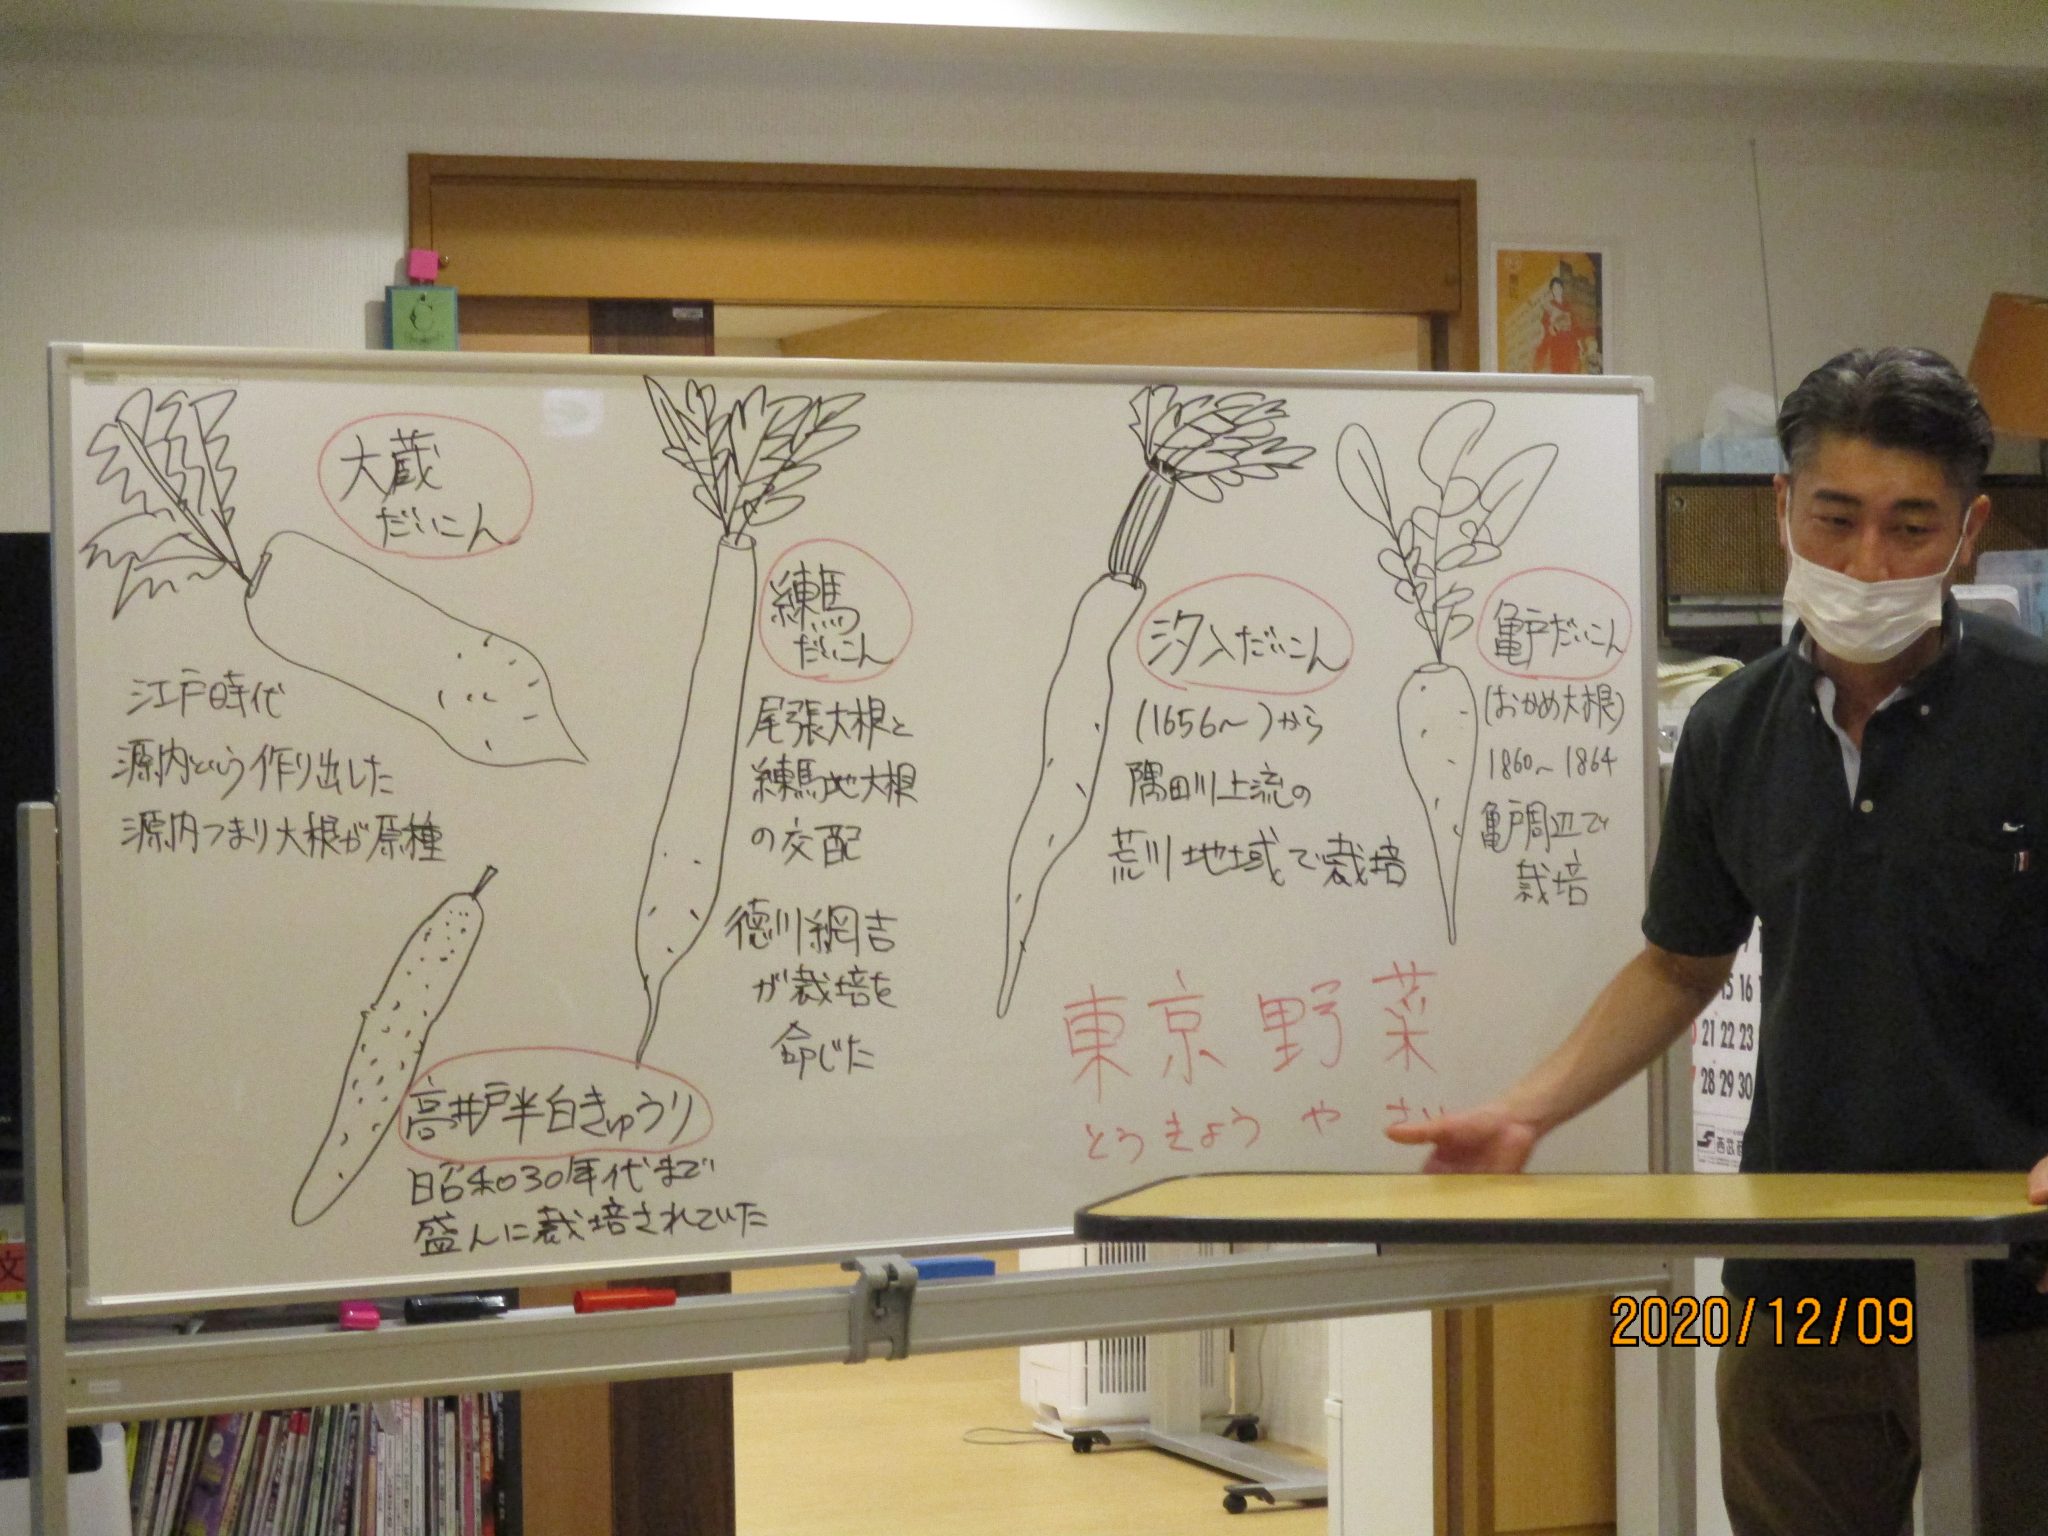 大蔵
だいこん
江戸時代
源内という作り出した
源内つまり大根が原種
練馬
だいこん
尾張大根と
練馬地大根
の交配
徳川綱吉
が栽培を
命じた
汐入だいこん
(1656〜)から
隅田川上流の
荒川地域で栽培
亀戸だいこん
(おかめ大根)
1860〜1864
亀戸周辺で
栽培
高井戸半白きゅうり
昭和30年代まで
盛んに栽培されていた
東京野菜
とうきょうやさい
C
15 16
21 22 23
28 29 30
文
2020/12/09